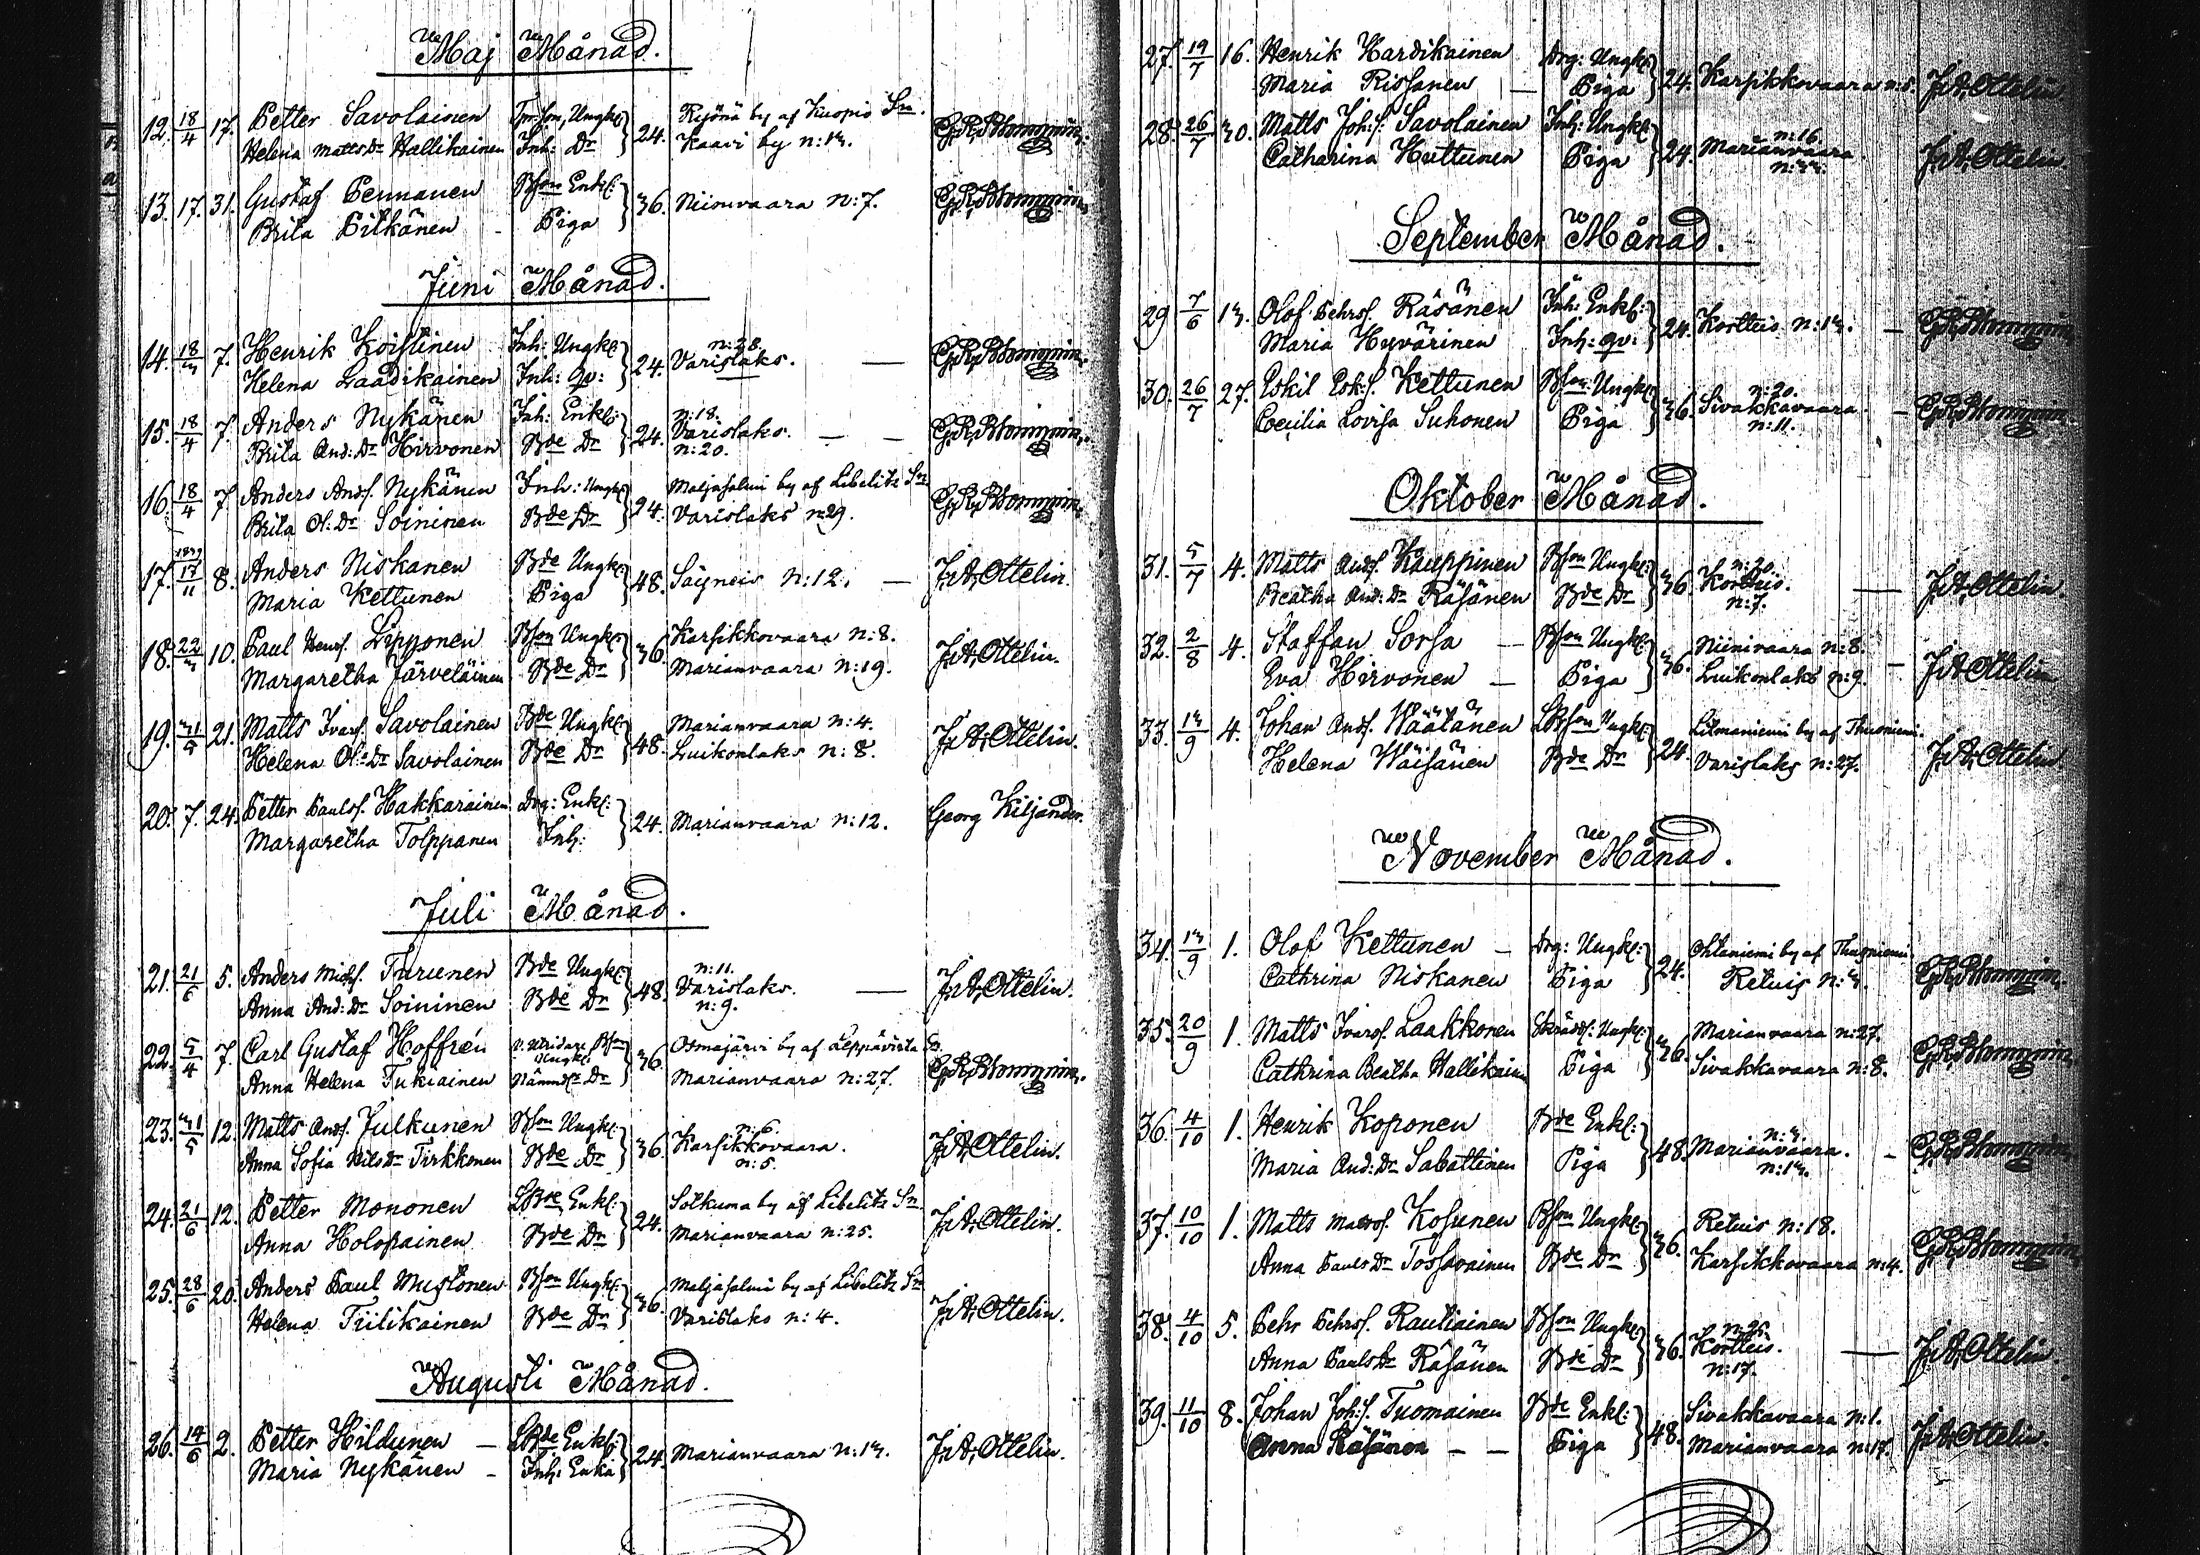 Maj Månad.
12. 18/4 17. Petter Savolainen Ungk: Ryönä by af Kuopio Sn.
Helena Matts Dr Hallikainen Inh: Dr } 24. Kaavi by n:13. G.R.Blommnin
13. 17. 31. Gustaf Pennanen Bson Enkl: } 36. Niinivaara n:7. G.R.Blommnin
Brita Pitkänen - Piga
Juni Månad.
14. 18/3 7. Henrik Koistinen Inh: Ungk: } 24. n:28. Varislaks. — G.R.Blommnin
Helena Laadikainen Inh: qv:
15. 18/4 7. Anders Nykänen Inh: Enkl: } 24. n:18. Varislaks. — — G.R.Blommnin
Brita And: Dr Hirvonen Bde Dr n:20.
16. 18/4 7. Anders Andf. Nykänen Inh: Ungk: } 24. Maljasalmi by af Libelitz Sn G.R.Blommnin
Brita Ol: Dr Soininen Bde Dr Varislaks n:29.
17. 1839 17/11 8. Anders Niskanen Bde Ungk: } 48. Säyneis n:12. — J.A.Ottelin.
Maria Kettunen Piga
18. 22/3 10. Paul Henrf. Lipponen Bson Ungk: } 36. Karsikkovaara n:8. J.A.Ottelin.
Margaretha Järveläinen Bde Dr Marianvaara n:19.
19. 31/5 21. Matts Ivarf. Savolainen Bde Ungk: } 48. Marianvaara n:4. J.A.Ottelin.
Helena Ol: Dr Savolainen Bde Dr Luikonlaks n:8.
20. 7. 24. Petter Paulsf. Hakkarainen Drg: Enkl: } 24. Marianvaara n:12. Georg Kiljander.
Margaretha Tolppanen Inh:
Juli Månad.
21. 21/6 5. Anders Michf. Turunen Bde Ungk: } 48. n:11. Varislaks. — J.A.Ottelin.
Anna And: Dr Soininen Bde Dr n:9.
22. 5/4 7. Carl Gustaf Hoffrén Bson Ungk: } 36. Osmajärvi by af Leppävirta S. G.R.Blommnin
Anna Helena Tukiainen Nämndm Dr Marianvaara n:27.
23. 31/5 12. Matts Andf. Julkunen Bson Ungk: } 36. n:6. Karsikkovaara. J.A.Ottelin.
Anna Sofia Nils Dr Tirkkonen Bde Dr n:5.
24. 21/6 12. Petter Mononen LBde Enkl: } 24. Solkuma by af Libelitz Sn J.A.Ottelin.
Anna Holopainen Bde Dr Marianvaara n:25.
25. 28/6 20. Anders Paul Mustonen Bson Ungk: } 36. Maljasalmi by af Libelitz Sn J.A.Ottelin.
Helena Tiilikainen Bde Dr Varislaks n:4.
Augusti Månad.
26. 14/6 2. Petter Hildunen — LBde Enkl: } 24. Marianvaara n:13. J.A.Ottelin.
Maria Nykänen - Inh: Enka
27. 19/7 16. Henrik Hardikainen Drg: Ungk: } 24. Karsikkovaara n:5. J.A.Ottelin.
Maria Rissanen — Piga
28. 26/7 30. Matts Joh:f. Savolainen Inh: Ungk: } 24. n:16. Marianvaara. J.A.Ottelin.
Catharina Huttunen Piga n:33.
September Månad.
29. 7/6 13. Olof Pehrsf. Räsänen Inh: Enkl: } 24. Kortteis n:13. — G.R.Blommnin
Maria Hyvärinen Inh: qv:
30. 26/7 27. Eskil Esk:f. Kettunen Bson Ungk: } 36. n:20. Sivakkavaara. — G.R.Blommnin
Cecilia Lovisa Suhonen Piga n:11.
Oktober Månad.
31. 5/7 4. Matts Andf. Kauppinen Bson Ungk: } 36. n:20. Kortteis. — J.A.Ottelin.
Beatha And: Dr Räsänen Bde Dr n:7.
32. 2/8 4. Staffan Sorsa — Bson Ungk: } 36. Niinivaara n:8. — J.A.Ottelin
Eva Hirvonen — Piga Luikonlaks n:9.
33. 13/9 4. Johan Andf. Väätänen LBson Ungk: } 24. Litmaniemi by af Thusniemi. J.A.Ottelin.
Helena Wäisänen Bde Dr Varislaks n:27.
November Månad.
34. 13/9 1. Olof Kettunen — Drg: Ungk: } 24. Ohtaniemi by af Thusniemi G.R.Blommnin
Cathrina Niskanen Piga Retuis n:3.
35. 20/9 1. Matts Ivarsf. Laakkonen Skrädd: Ungk: } 36. Marianvaara n:27. G.R.Blommnin
Cathrina Beatha Hallikain Piga Sivakkavaara n:8.
36. 4/10 1. Henrik Koponen Bde Enkl: } 48. n:3. Marianvaara. - G.R.Blommnin
Maria And: Dr Sabattinen Piga n:13.
37. 10/10 1. Matts Kosunen Bson Ungk: } 36. Retuis n:18. G.R.Blommnin
Anna Pauls Dr Tossavainen Bde Dr Karsikkovaara n:4.
38. 4/10 5. Pehr Pehrsf. Rautiainen Bson Ungk: } 36. n:25. Kortteis. — J.A.Ottelin.
Anna Pauls Dr Räsänen Bde Dr n:17.
39. 11/10 8. Johan Joh:f. Tuomainen Bde Enkl: } 48. Sivakkavaara n:1. J.A.Ottelin.
Anna Räsänen — — Piga Marianvaara n:17.